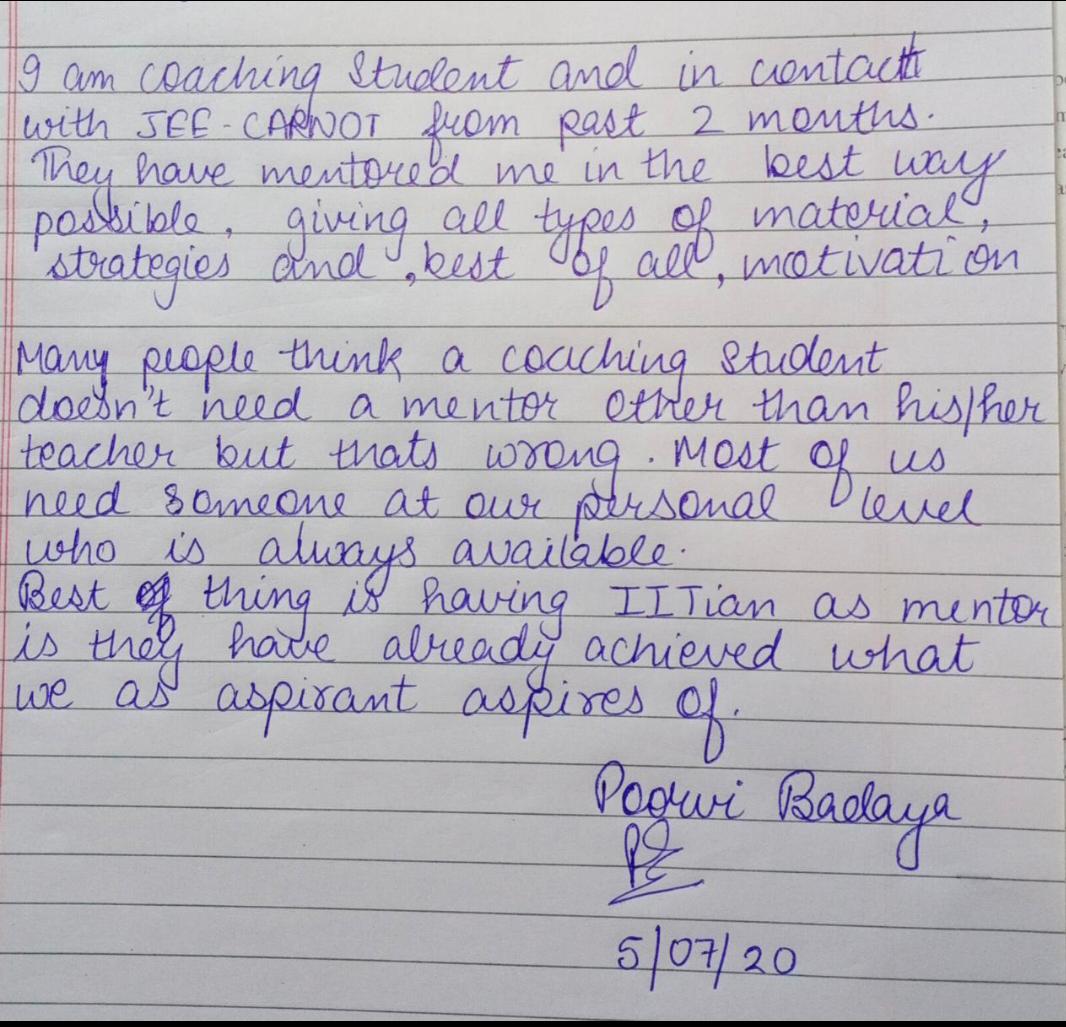 I am coaching student and in contact
with JEE-CARNOT from past 2 months.
They have mentored me in the best way
possible, giving all types of material,
strategies and, best of all, motivation
Many people think a coaching student
doesn't need a mentor other than his/her
teacher but thats wrong. Most of us
need someone at our personal level
who is always available.
Best thing is having IITian as mentor
is they have already achieved what
we as aspirant aspires of.
Poorvi Badaya
5/07/20